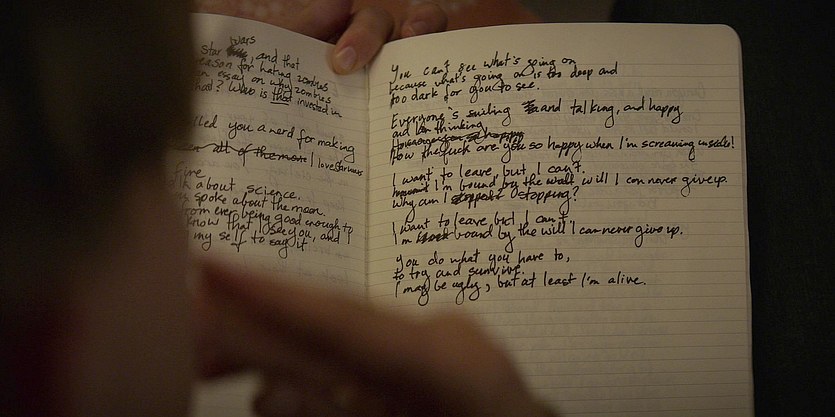 wars
Star and that
reason for hating zombies
an essay on why zombies
Who is that invested in
called you a nerd for making
all of the most I love Star wars
Fire
talk about science.
spoke about the moon.
from ever being good enough to
know that I see you, and I
my self to say it
You can't see what's going on
because what's going on is too deep and
too dark for you to see.
Everyone's smiling and talking, and happy
and I'm thinking
how the fuck are you so happy when I'm screaming inside!
I want to leave, but I can't.
I'm bound by the wall, will I can never give up.
Why am I stopped? stopping?
I want to leave but I can't
I'm bound by the will I can never give up.
you do what you have to,
to try and survive.
I may be ugly, but at least I'm alive.